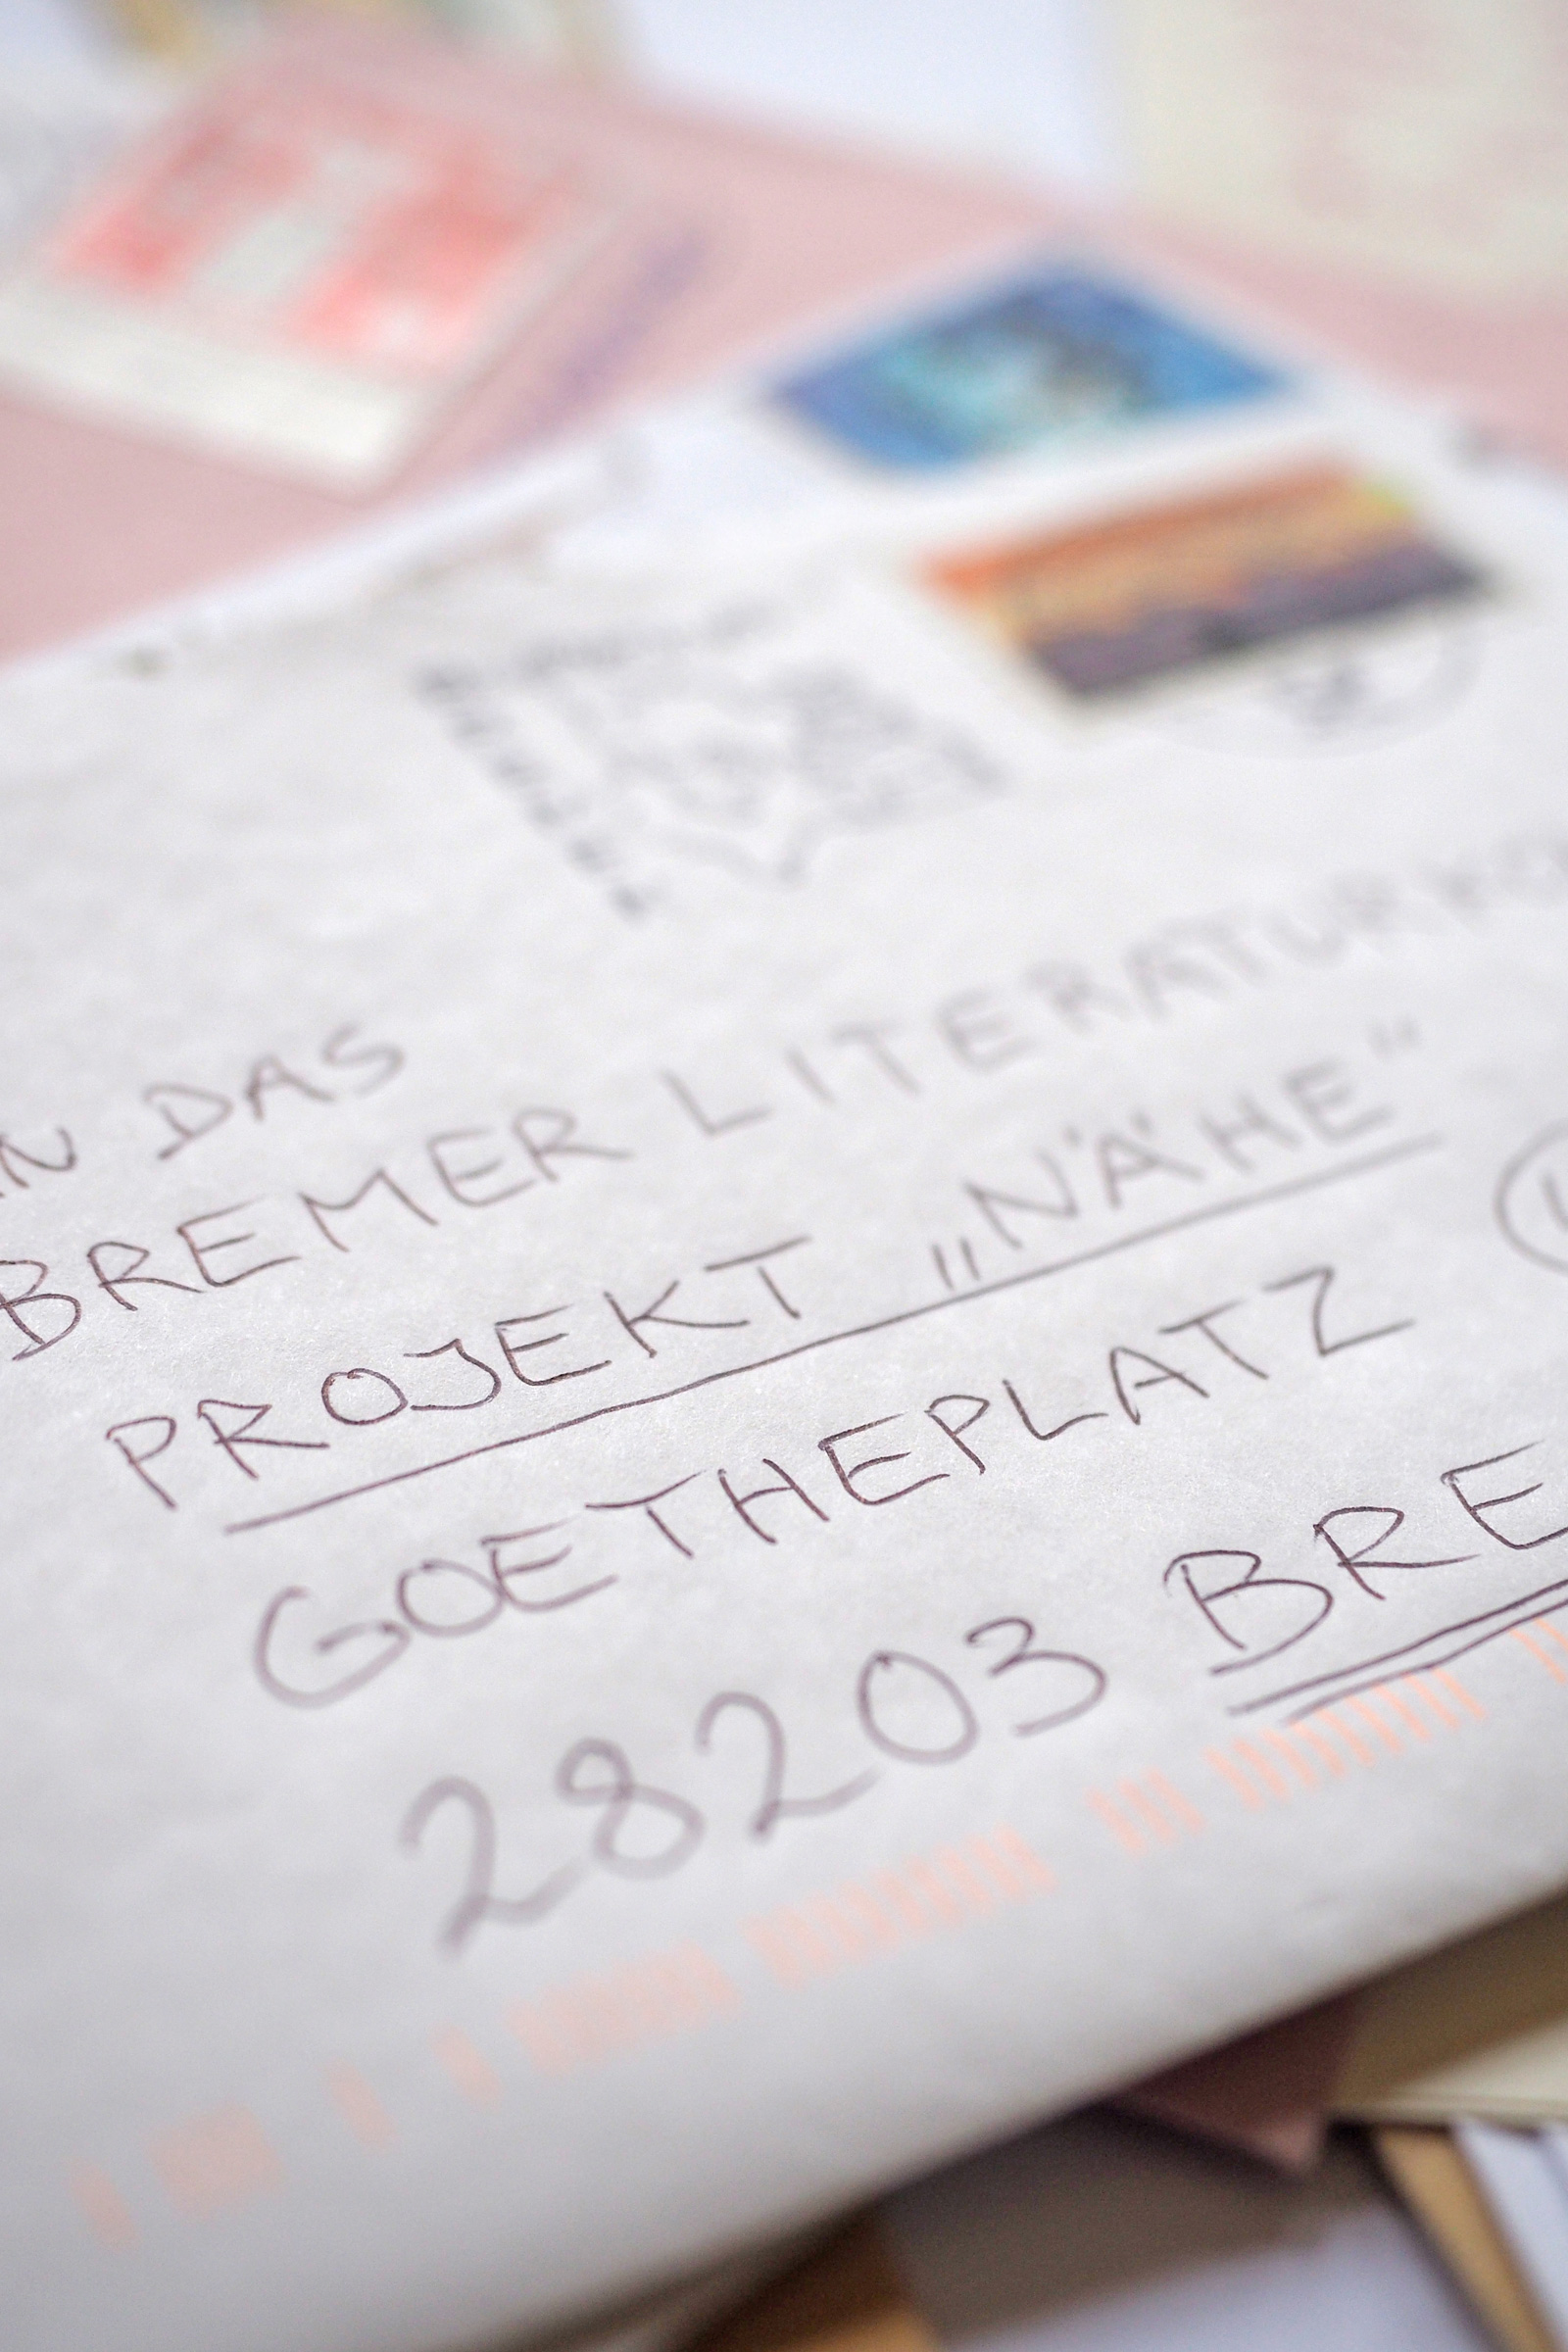 AN DAS
BREMER LITERATURKO
PROJEKT „NÄHE“
GOETHEPLATZ
28203 BRE